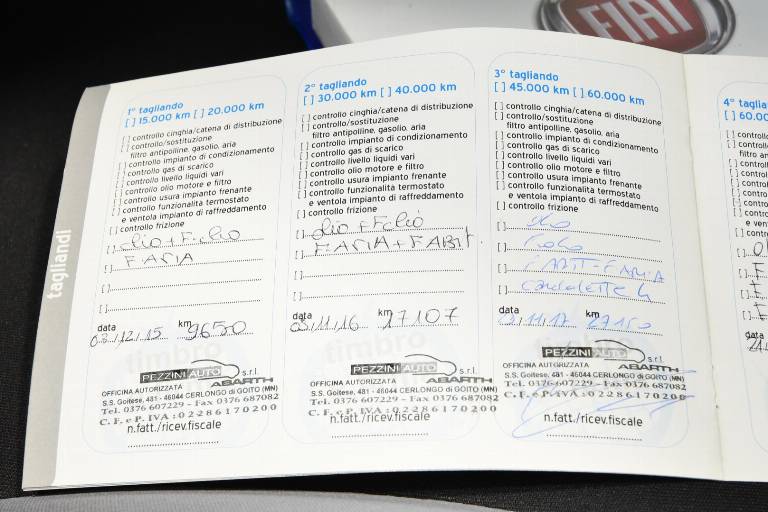 FIAT
tagliandi
1° tagliando
[ ] 15.000 km [ ] 20.000 km
[ ] controllo cinghia/catena di distribuzione
[ ] controllo/sostituzione
filtro antipolline, gasolio, aria
[ ] controllo impianto di condizionamento
[ ] controllo gas di scarico
[ ] controllo livello liquidi vari
[ ] controllo olio motore e filtro
[ ] controllo usura impianto frenante
[ ] controllo funzionalità termostato
e ventola impianto di raffreddamento
[ ] controllo frizione
[ ] olio+Filtro
[ ] F.ARIA
[ ]
[ ]
data km
03/12/15 9650
PEZZINI AUTO s.r.l.
OFFICINA AUTORIZZATA ABARTH
S.S. Goitese, 481 - 46044 CERLONGO di GOITO (MN)
Tel. 0376 607229 - Fax 0376 687082
C. F. e P. IVA : 0 2 2 8 6 1 7 0 2 0 0
n.fatt./ricev.fiscale
2° tagliando
[ ] 30.000 km [ ] 40.000 km
[ ] controllo cinghia/catena di distribuzione
[ ] controllo/sostituzione
filtro antipolline, gasolio, aria
[ ] controllo impianto di condizionamento
[ ] controllo gas di scarico
[ ] controllo livello liquidi vari
[ ] controllo olio motore e filtro
[ ] controllo usura impianto frenante
[ ] controllo funzionalità termostato
e ventola impianto di raffreddamento
[ ] controllo frizione
[ ] olio +Filtro
[ ] F.ARIA+FABIT.
[ ]
[ ]
data km
03/11/16 17107
PEZZINI AUTO s.r.l.
OFFICINA AUTORIZZATA ABARTH
S.S. Goitese, 481 - 46044 CERLONGO di GOITO (MN)
Tel. 0376 607229 - Fax 0376 687082
C. F. e P. IVA : 0 2 2 8 6 1 7 0 2 0 0
n.fatt./ricev.fiscale
3° tagliando
[ ] 45.000 km [ ] 60.000 km
[ ] controllo cinghia/catena di distribuzione
[ ] controllo/sostituzione
filtro antipolline, gasolio, aria
[ ] controllo impianto di condizionamento
[ ] controllo gas di scarico
[ ] controllo livello liquidi vari
[ ] controllo olio motore e filtro
[ ] controllo usura impianto frenante
[ ] controllo funzionalità termostato
e ventola impianto di raffreddamento
[ ] controllo frizione
[ ] olio
[ ]
[ ] FABIT-F.ARIA
[ ] candelette 4
data km
11/17 27150
PEZZINI AUTO s.r.l.
OFFICINA AUTORIZZATA ABARTH
S.S. Goitese, 481 - 46044 CERLONGO di GOITO (MN)
Tel. 0376-607229 - Fax 0376 687082
C. F. e P. IVA : 0 2 2 8 6 1 7 0 2 0 0
n.fatt./ricev.fiscale
4° taglia
[ ] 60.00
data